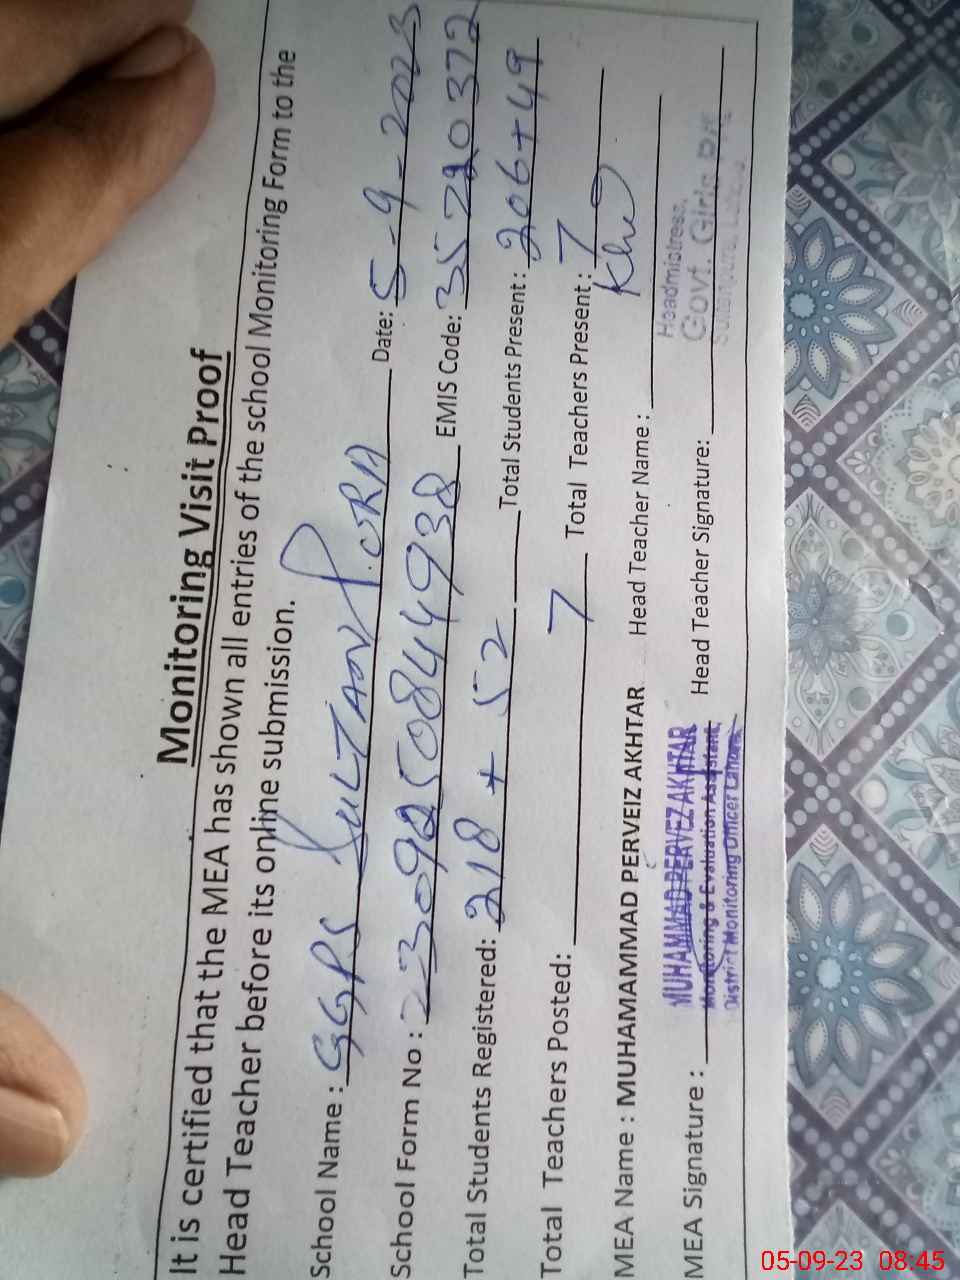 Monitoring Visit Proof
It is certified that the MEA has shown all entries of the school Monitoring Form to the
Head Teacher before its online submission.
School Name : GGPS SULTAN P.ORA Date: 5-9-2023
School Form No : EMIS Code: 35720372
Total Students Registered: 218 + 52 Total Students Present : 206+49
Total Teachers Posted: 7 Total Teachers Present : 7
MEA Name : MUHAMAMMAD PERVEIZ AKHTAR Head Teacher Name :
Headmistress,
Govt. Girls
MEA Signature : Head Teacher Signature:
MUHAMMAD PERVEZ AKHTAR
Monitoring & Evaluation Assistant,
District Monitoring Officer Lahore.
05-09-23 08:45